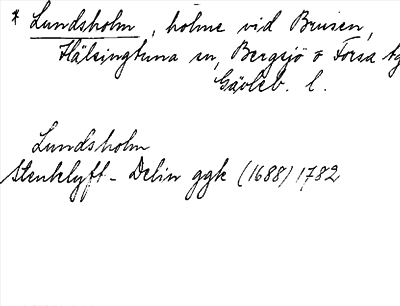 * Lundsholm, holme vid Brusen,
Hälsingtuna sn, Bergsjö o Forsa tg
Gävleb. l.
Lundsholm
Stenklyft - Delin ggk (1688) 1782